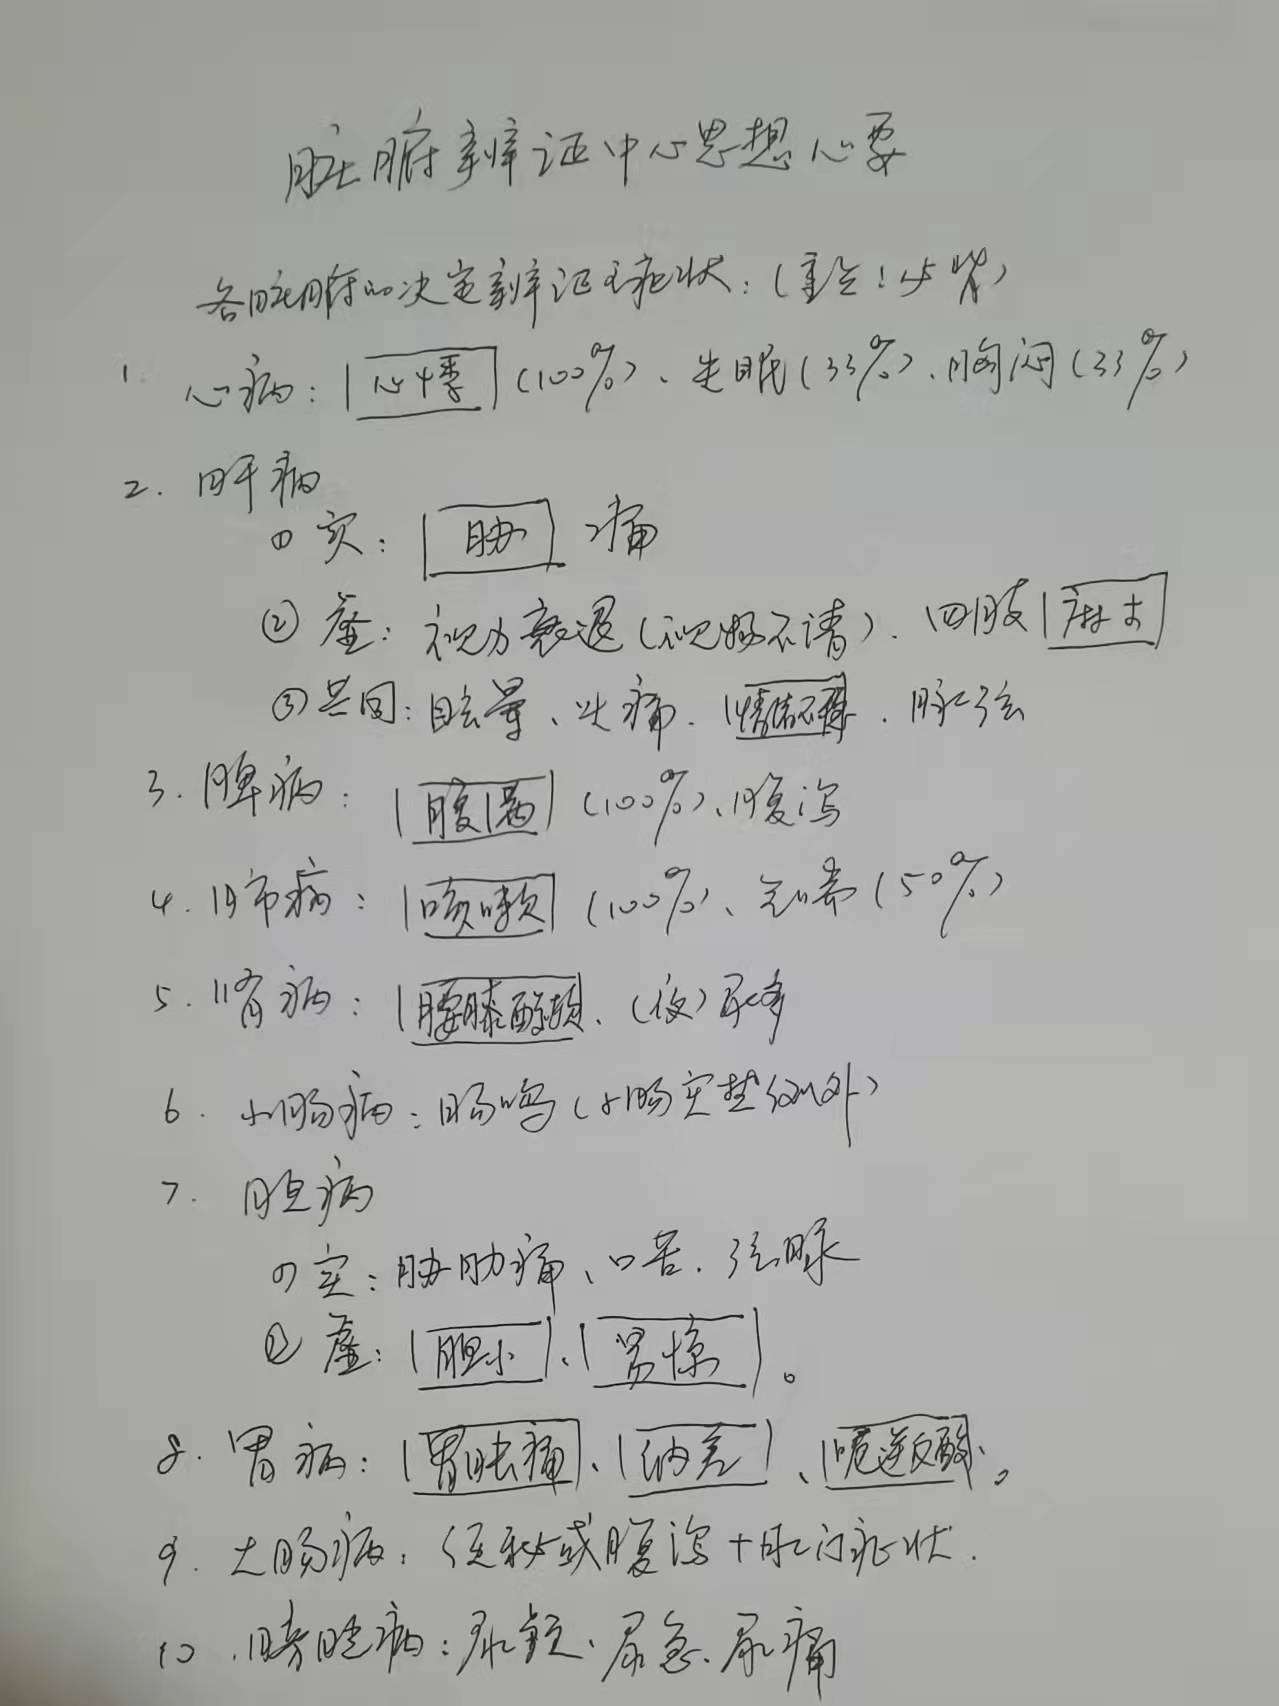 脏腑辨证中心思想心要
各脏腑的决定辨证主症状：（重点！必背）
1. 心病：心悸（100%）、失眠（33%）、胸闷（33%）
2. 肝病
① 实：胁痛
② 虚：视力衰退（视物不清）、四肢麻木
③ 共同：眩晕、头痛、情志不舒、脉弦
3. 脾病：腹满（100%）、腹泻
4. 肺病：咳嗽（100%）、气喘（50%）
5. 肾病：腰膝酸软、（夜）尿多
6. 小肠病：肠鸣（小肠实热例外）
7. 胆病
① 实：胁肋痛、口苦、弦脉
② 虚：胆小、易惊。
8. 胃病：胃胀痛、纳差、嗳逆反酸。
9. 大肠病：便秘或腹泻+肛门症状.
10. 膀胱病：尿频、尿急、尿痛